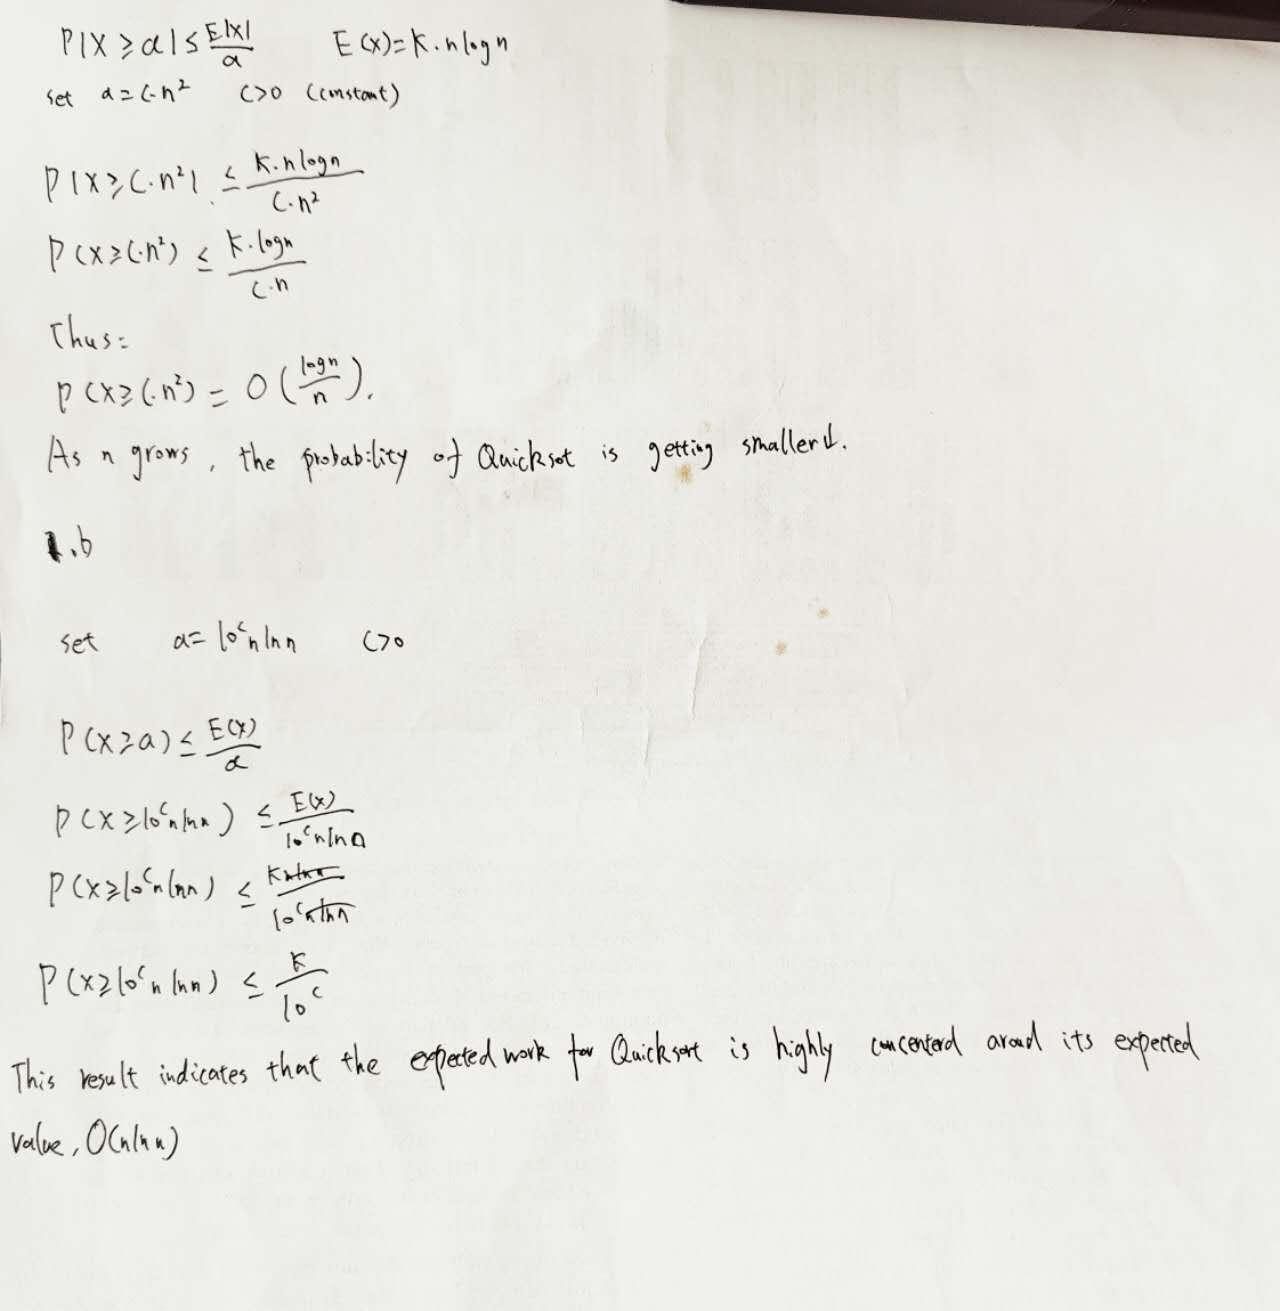 P|X ≥ a| ≤ E|X|/a E(x)=K.nlogn
set a=C·n² C>0 (constant)
P|X ≥ C·n²| ≤ K.nlogn/C·n²
P(X≥C·n²) ≤ K·logn/C·n
Thus:
P(X≥C·n²) = O(logn/n).
As n grows, the probability of Quicksot is getting smaller↓.
1.b
set a=10ᶜn ln n C>0
P(X≥a) ≤ E(X)/a
P(X≥10ᶜn ln n) ≤ E(x)/10ᶜn ln n
P(X≥10ᶜn ln n) ≤ K n ln n/10ᶜ n ln n
P(X≥10ᶜn ln n) ≤ K/10ᶜ
This result indicates that the expected work for Quicksort is highly concenterd aroud its expected
value, O(n ln n)